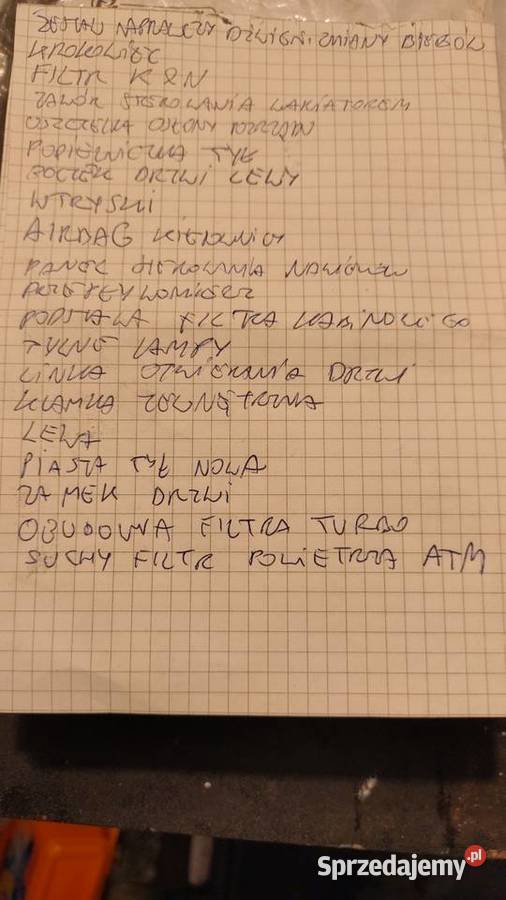 ZESTAW NAPRAWCZY DŹWIGNI ZMIANY BIEGÓW
KROKOWIEC
FILTR K&N
ZAWÓR STEROWANIA WARIATOREM
USZCZELKA OSŁONY ROZRZĄDU
POPIELNICZKA TYŁ
BOCZEK DRZWI LEWY
WTRYSKI
AIRBAG KIEROWNICY
PANEL STEROWANIA NAWIEWEM
PRZEPŁYWOMIERZ
PODSTAWA FILTRA KABINOWEGO
TYLNE LAMPY
LINKA OTWIERANIA DRZWI
KLAMKA ZEWNĘTRZNA
LEWA
PIASTA TYŁ NOWA
ZAMEK DRZWI
OBUDOWA FILTRA TURBO
SUCHY FILTR POWIETRZA ATM
Sprzedajemy.pl